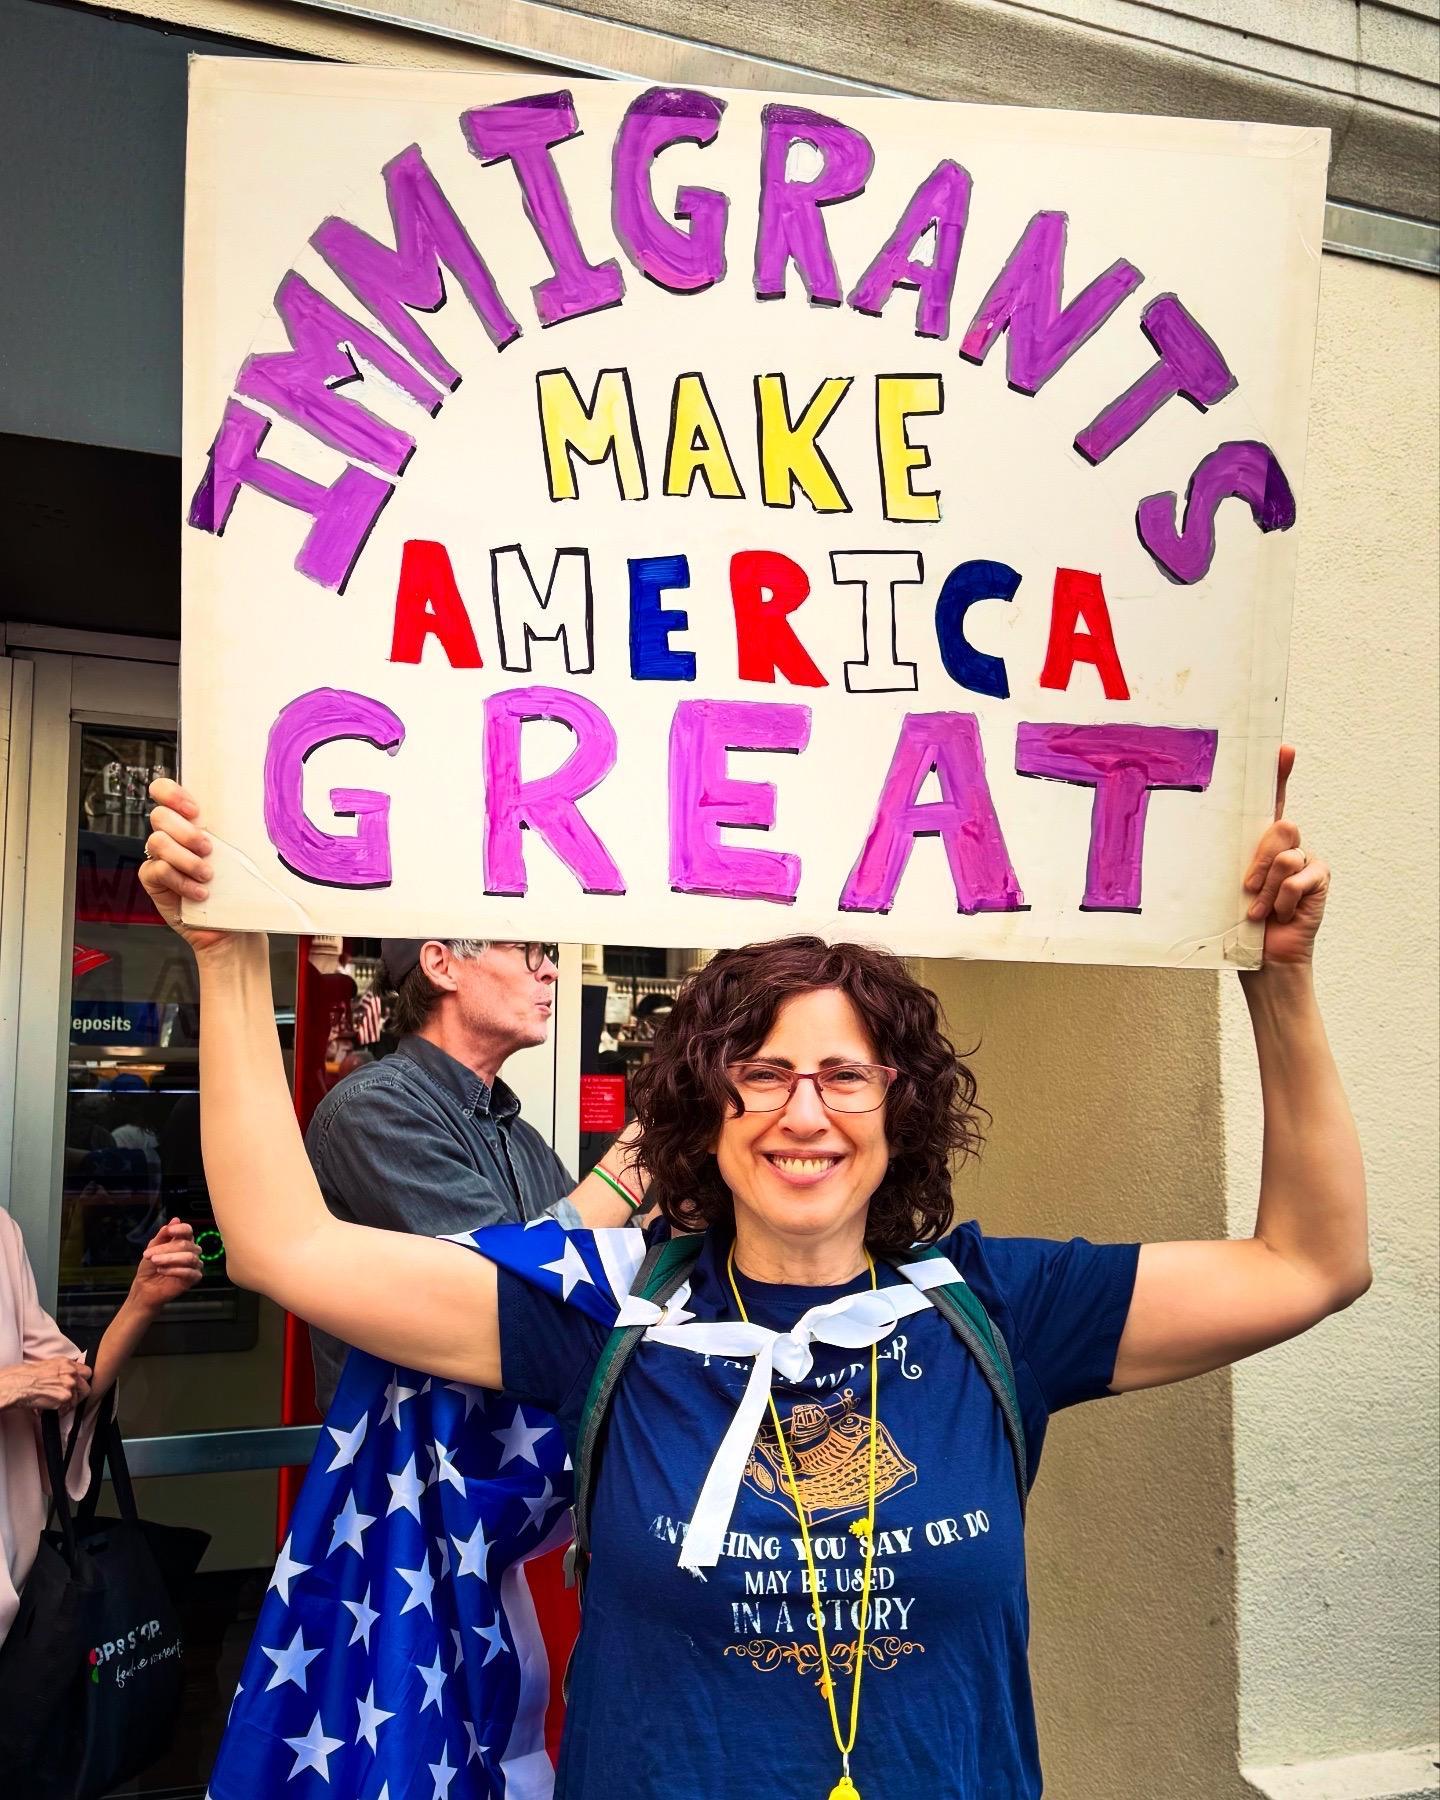 IMMIGRANTS
MAKE
AMERICA
GREAT
eposits
ANYTHING YOU SAY OR DO
MAY BE USED
IN A STORY